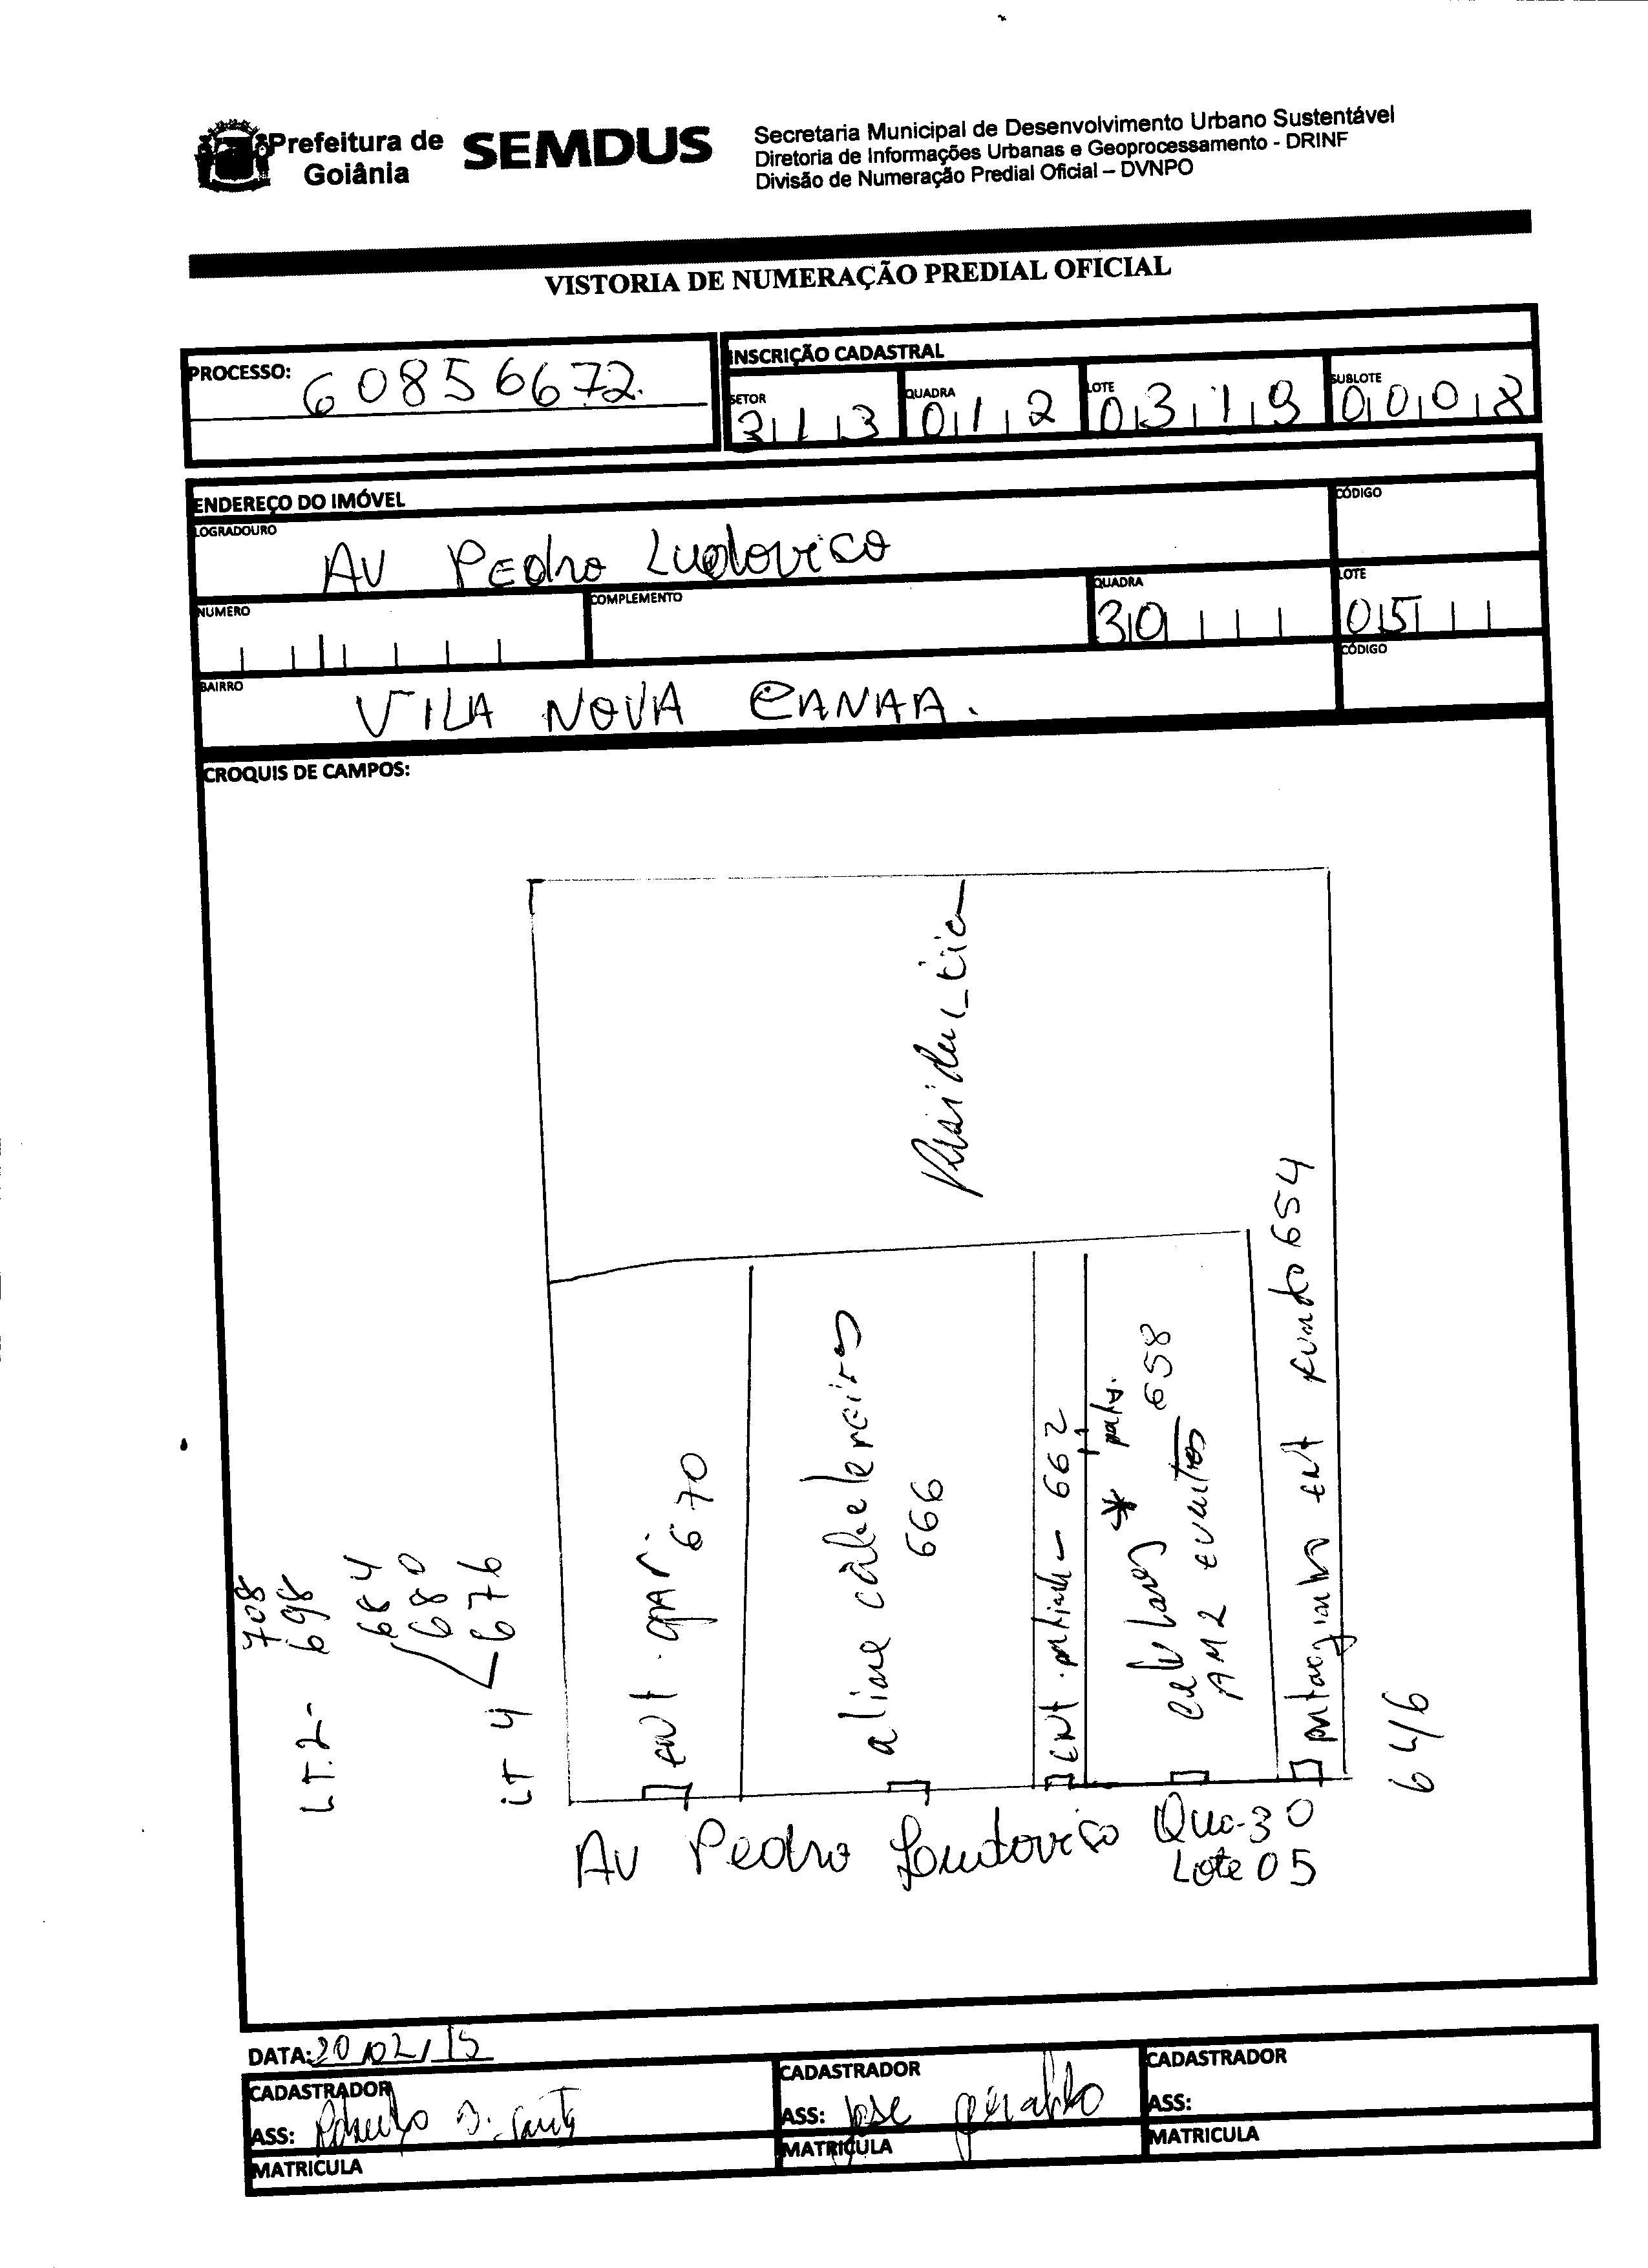 Prefeitura de Goiânia
SEMDUS
Secretaria Municipal de Desenvolvimento Urbano Sustentável
Diretoria de Informações Urbanas e Geoprocessamento - DRINF
Divisão de Numeração Predial Oficial – DVNPO
VISTORIA DE NUMERAÇÃO PREDIAL OFICIAL
PROCESSO: 60856672.
INSCRIÇÃO CADASTRAL
SETOR 313 QUADRA 012 LOTE 0319 SUBLOTE 0008
ENDEREÇO DO IMÓVEL
LOGRADOURO AV Pedro Ludovico
CÓDIGO
NUMERO
COMPLEMENTO
QUADRA 30
LOTE 05
BAIRRO VILA NOVA CANAA.
CÓDIGO
CROQUIS DE CAMPOS:
LT.2- 698
708
684
680
LT 4 676
ENT. 670
aline cabelereiros
666
ENT. - 662
658
AM2 eventos
portaozinho ENT fundo 654
646
AV Pedro Ludovico Qua-30
Lote 05
DATA: 20/02/15
CADASTRADOR
ASS:
MATRICULA
CADASTRADOR
ASS: Jose Geraldo
MATRICULA
CADASTRADOR
ASS:
MATRICULA